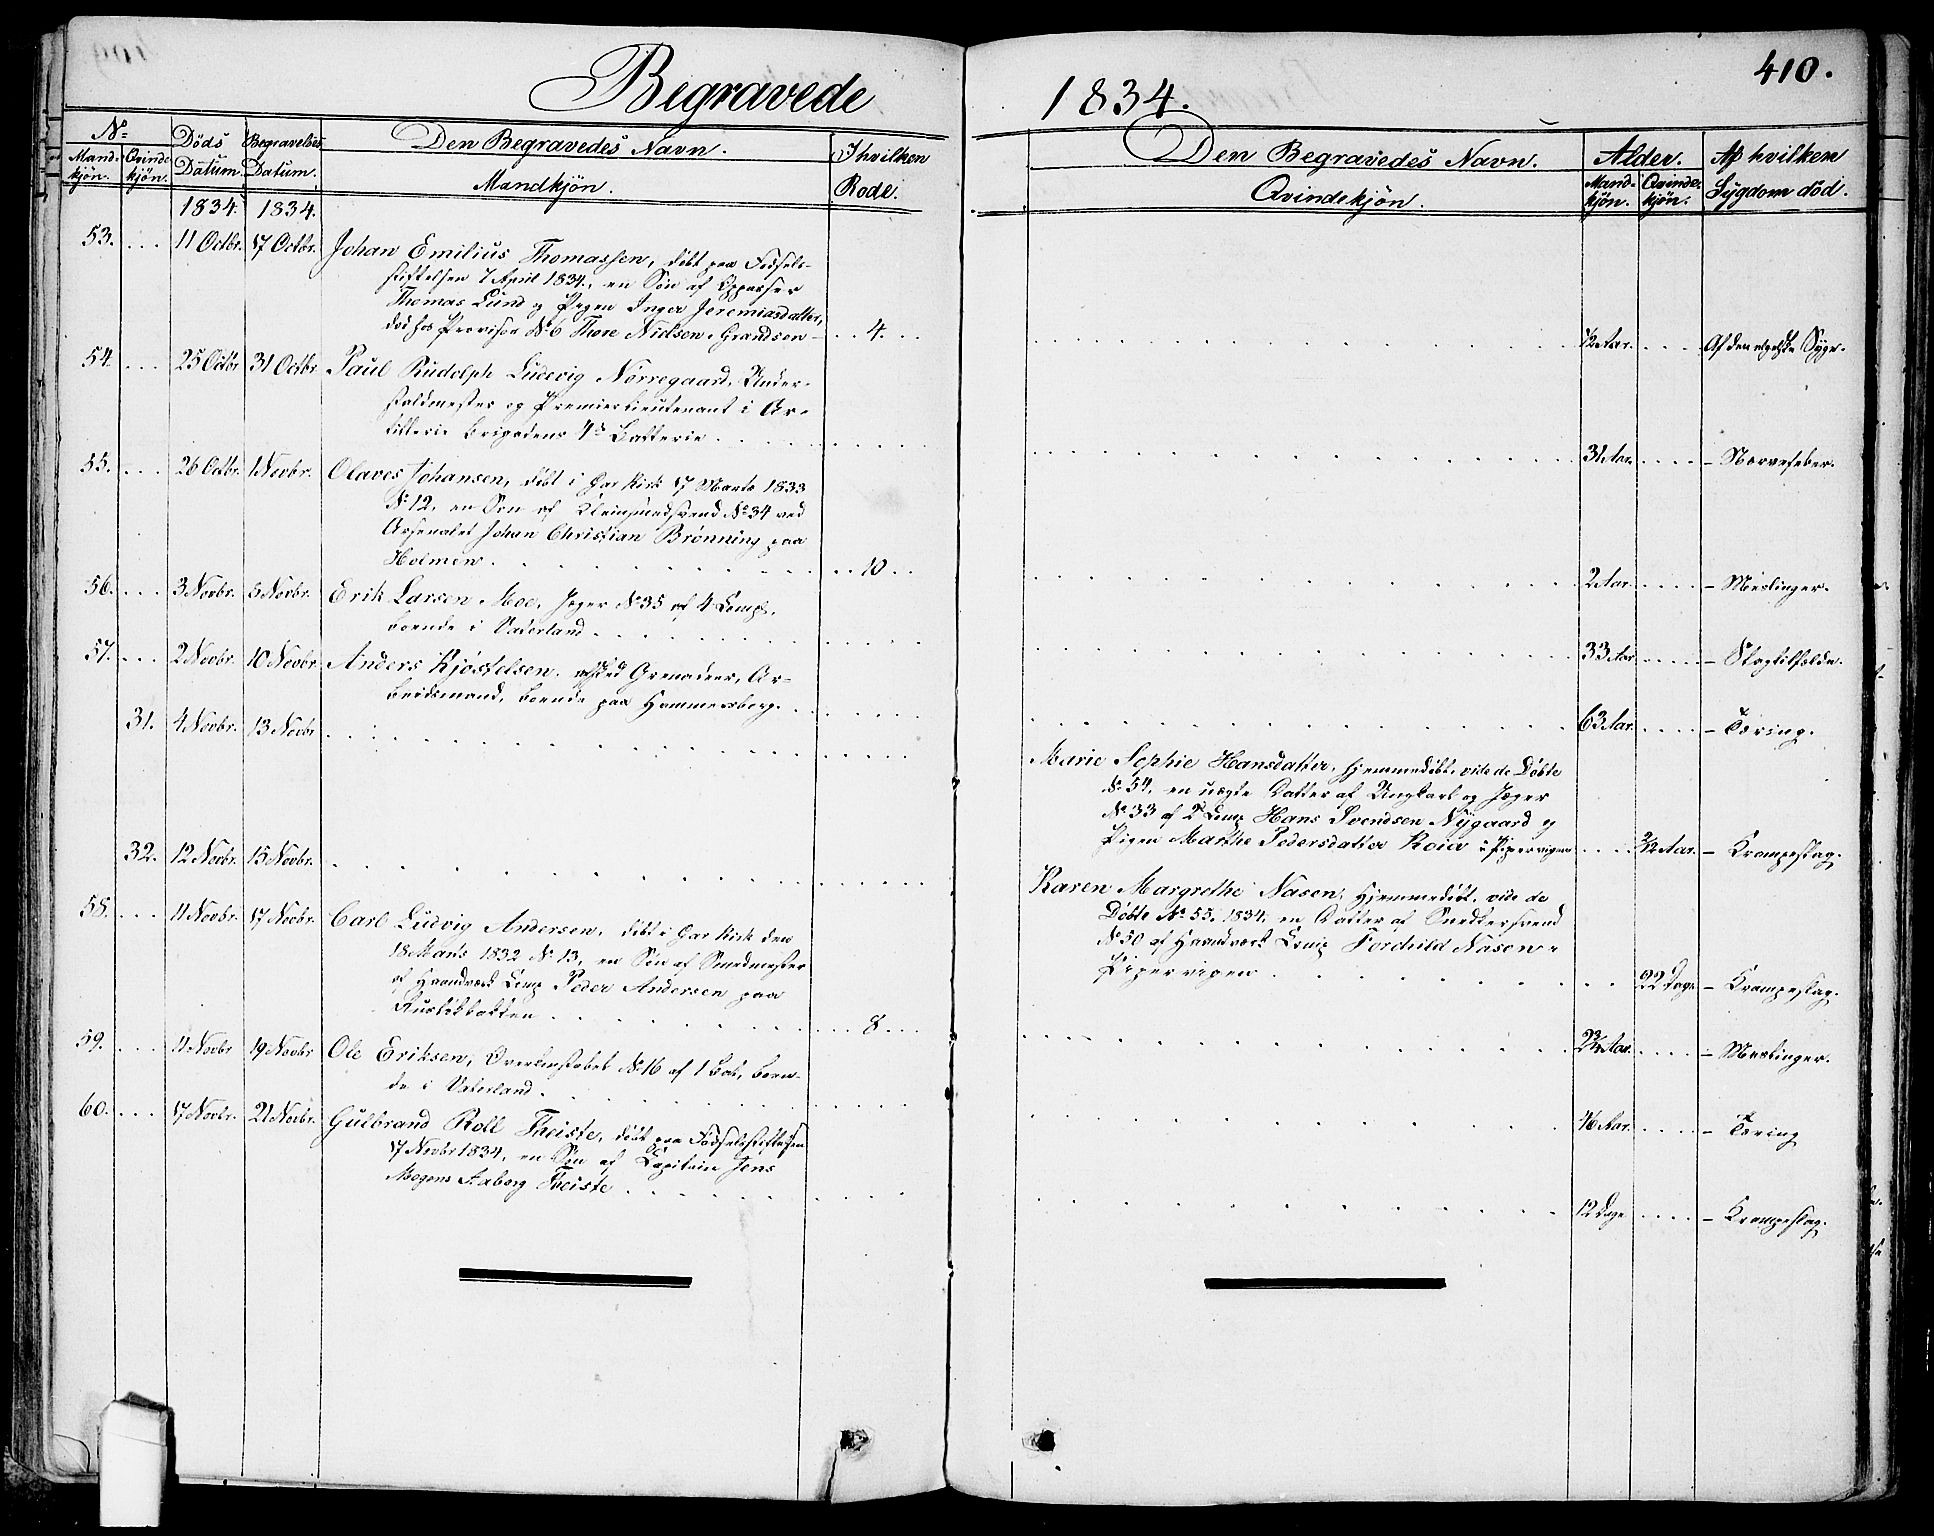 Begravede
1834.
410.
No
Mand-
kjön.
Qvinde
kjön.
Döds
Datum.
Begravelses
Datum.
Den Begravedes Navn.
Mandkjön.
I hvilken
Rode.
Den Begravedes Navn.
Qvindekjön.
Alder.
Mand-
kjön.
Qvinde-
kjön.
Af hvilken
Sygdom död.
1834. 1834.
53. 11 Octbr. 17 Octbr. Johan Emilius Thomassen, döbt paa Födsels-
stiftelsen 7 April 1834, en Sön af Oppasser
Thomas Lund og Pigen Inger Jeremiasdatter,
död hos Provisor No 6 Thore Nielsen Grandsen 4. 1/2 Aar. Af den engelske Syge.
54. 25 Octbr 31 Octbr Paul Rudolph Ludevig Nörregaard, Under-
staldmester og Premierlieutenant i Ar-
tillerie Brigadens 4de Batterie 31 Aar. – Nervefeber.
55. 26 Octbr. 1 Novbr. Olaves Johansen, döbt i Gar Kirk 17 Marts 1833
No 12, en Sön af Kleinsmedsvend No 34 ved
Arsenalet Johan Christian Brönning paa
Holmen 10 2 Aar. – Meslinger.
56. 3 Novbr. 5 Novbr. Erik Larsen Moe, Jæger No 35 af 4 Comp.
boende i Vaterland 33 Aar – Slagtilfælde.
57. 2 Novbr. 10 Novbr Anders Kjöstelsen, afsked Grenadeer, Ar-
beidsmand, boende paa Hammersborg. 63 Aar. – Tæring.
31. 4 Novbr. 13 Novbr Marie Sophie Hansdatter, hjemmedöbt, vide de Döbte
No 54, en uægte Datter af Ungkarl og Jæger
No 33 af 2 Comp Hans Svendsen Nygaard og
Pigen Marthe Pedersdatter Roia i Pipervigen Aar. – Krampeslag.
32. 12 Novbr. 15 Novbr. Karen Margrethe Nasen, hjemmedöbt, vide de
Döbte No 55, 1834, en Datter af Snedkersvend
No 50 af Haandværk Comp Torchild Nasen i
Pipervigen 22 Dage – Krampeslag.
58. 11 Novbr. 17 Novbr. Carl Ludvig Andersen, döbt i Gar Kirk den
18 Marts 1832 No 13, en Sön af Smedmester
af Haandværk Comp Peder Andersen paa
Ruslökbakken 8 Aar. – Meslinger.
59. 11 Novbr 19 Novbr Ole Eriksen, No 16 af 1 Bat, boen-
de i Vaterland. 46 Aar. – Tæring
60. 17 Novbr. 21 Novbr. Gulbrand Roll Theiste, döbt paa Födselsstiftelsen
17 Novbr 1834, en Sön af Capitain Jens
Mogens Aaberg Theiste 12 Dage – Krampeslag.